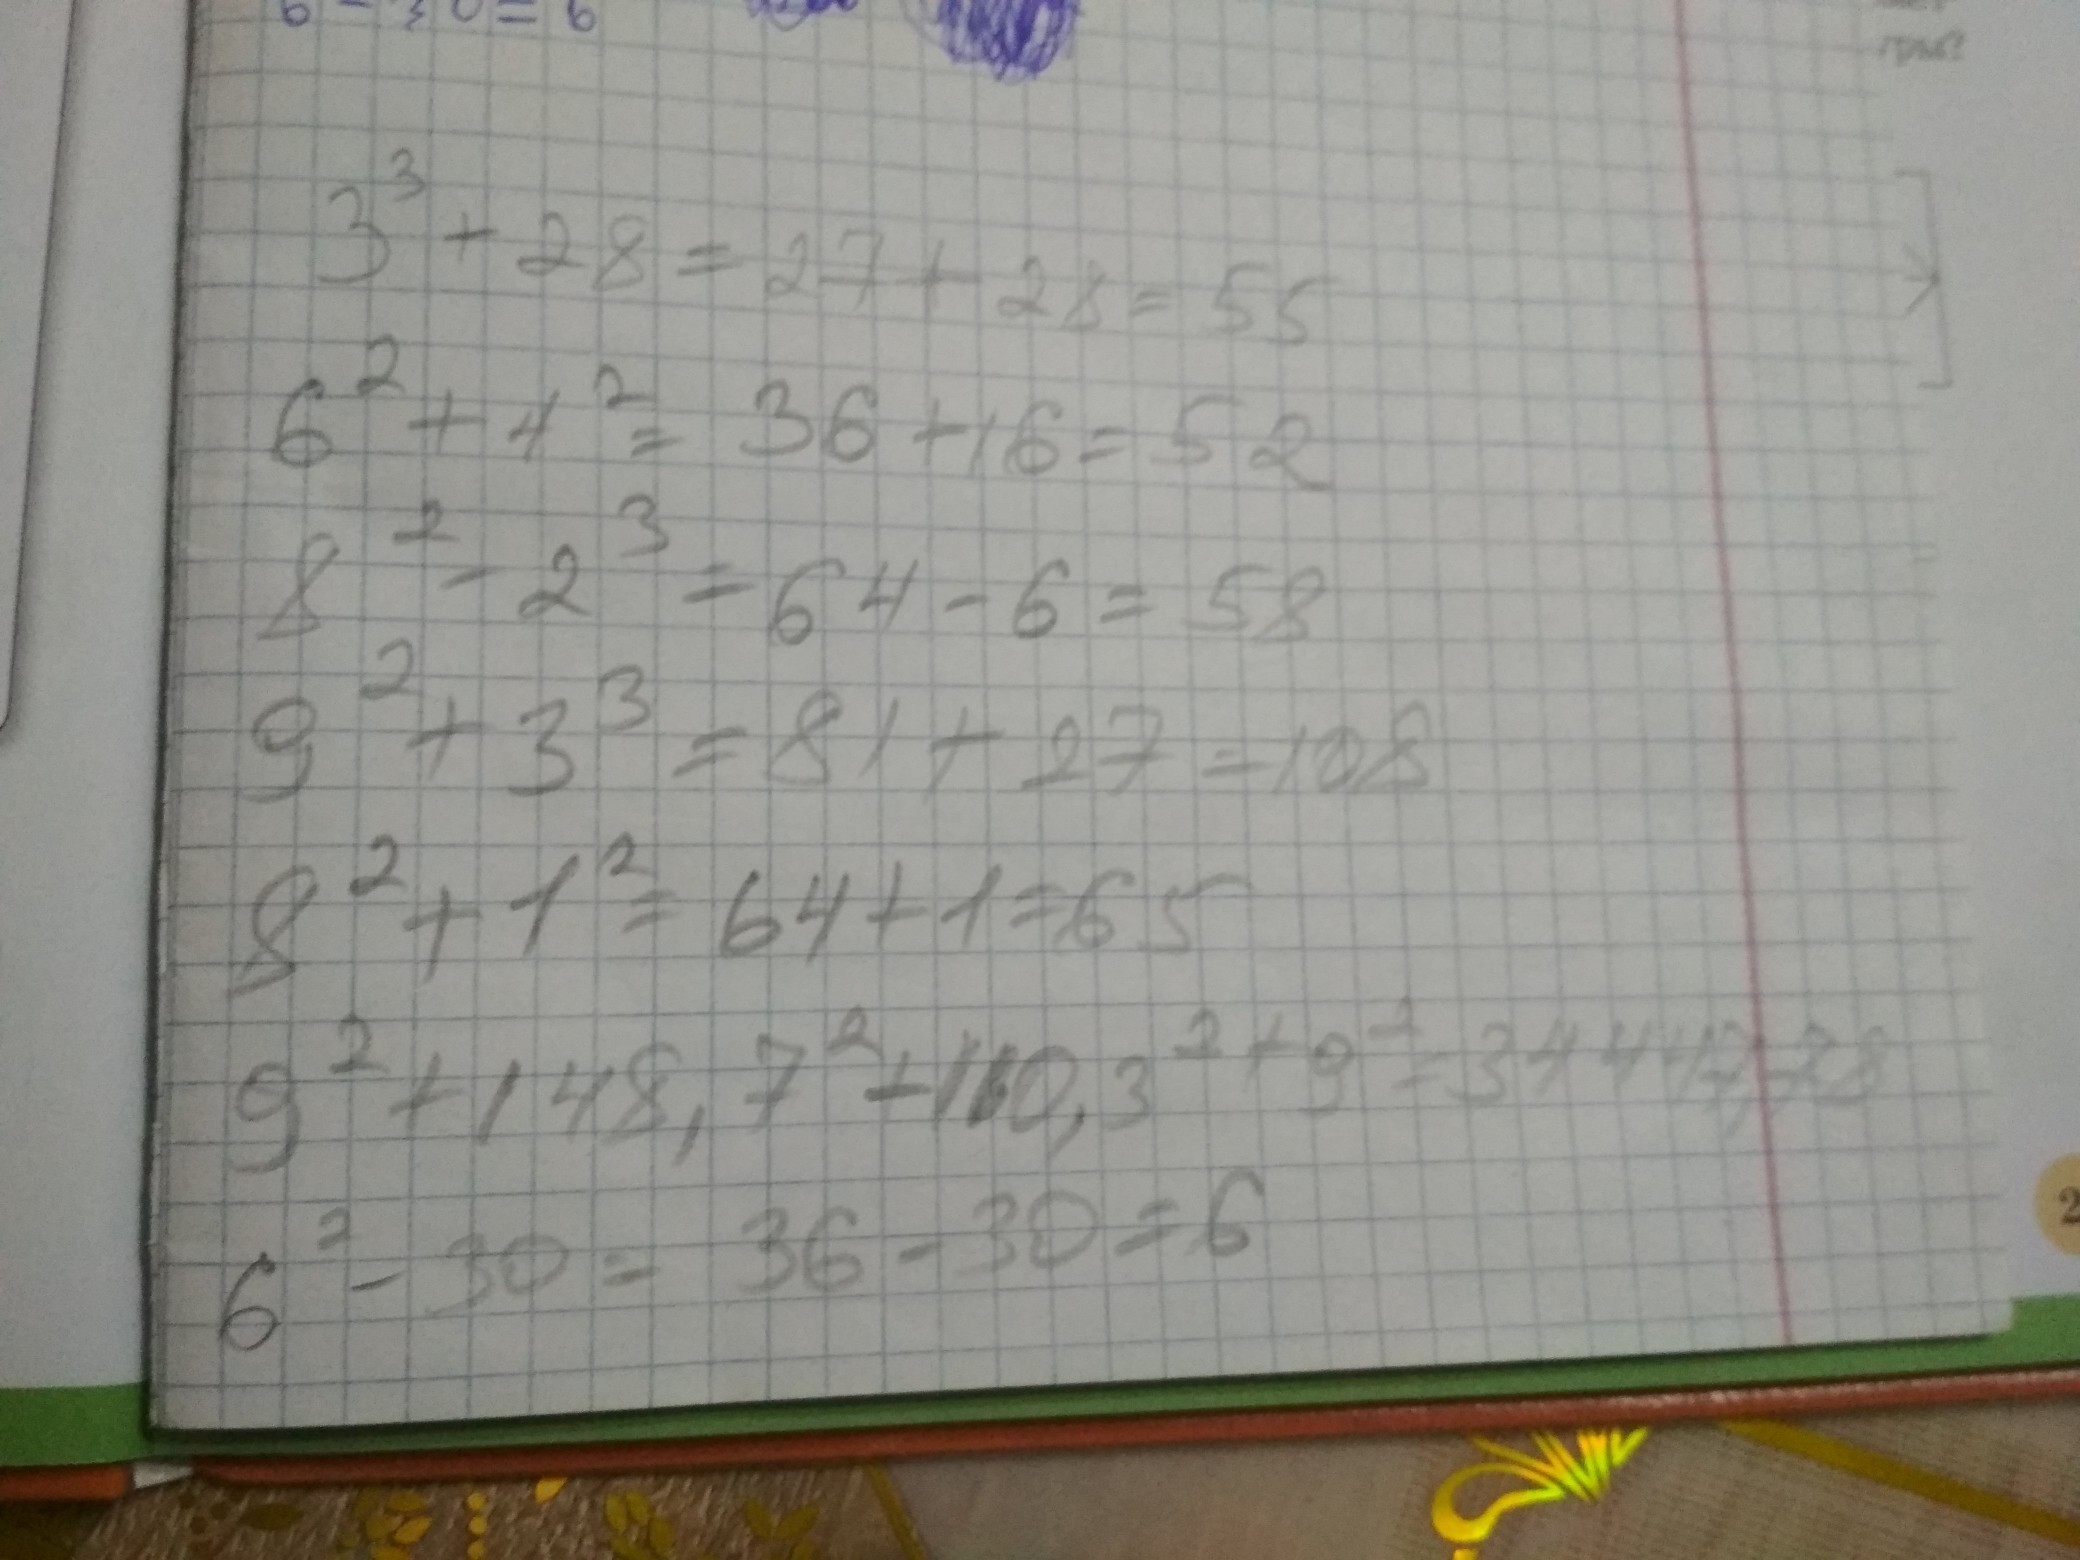 6 - 30 = 6
3³ + 28 = 27 + 28 = 55
6² + 4² = 36 + 16 = 52
8² - 2³ = 64 - 6 = 58
9² + 3³ = 81 + 27 = 108
8² + 1² = 64 + 1 = 65
9² + 148,7² + 110,3² + 9² =
6² - 30 = 36 - 30 = 6
2